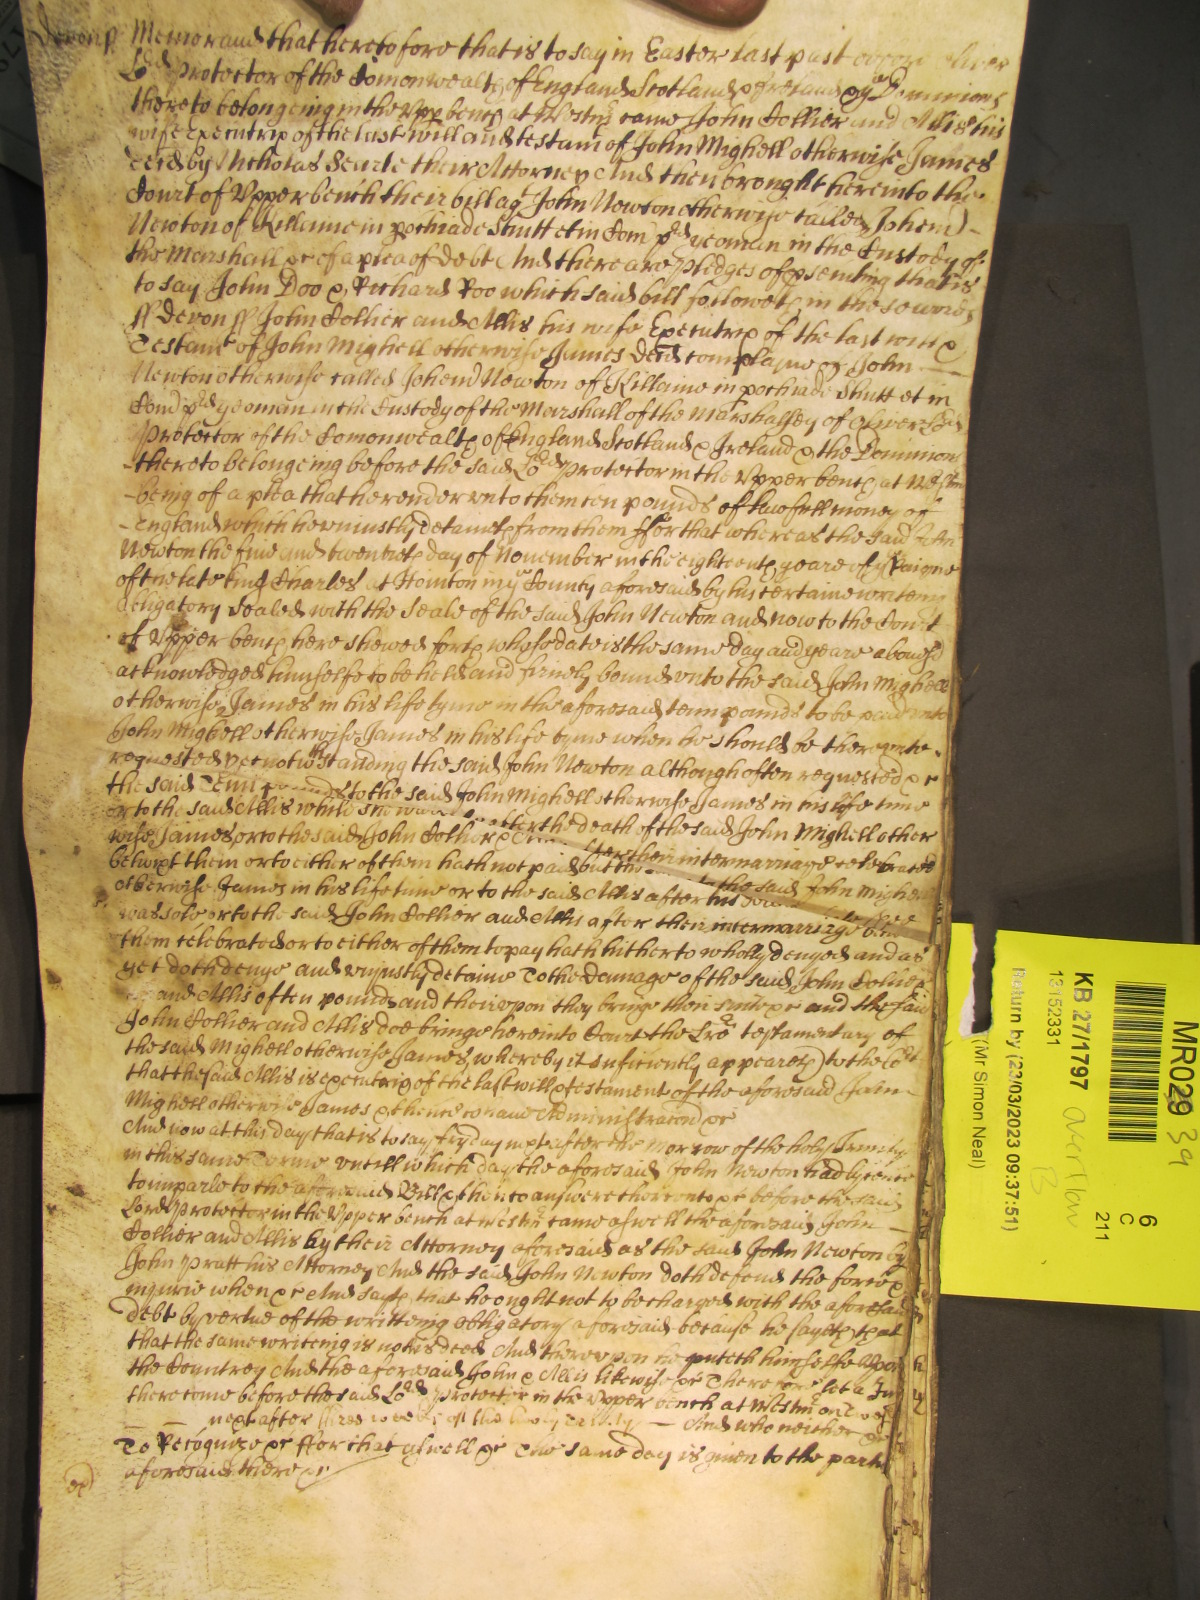 Devon ss Memorand that heretofore that is to say in Easter last past before Oliver
Lord Protector of the Comonwealth of England Scotland & Ireland & ye Dominions
thereto belongeing in the Upp bench at Westmr came John Collier and Allis his
wife Executrix of the last will and testam of John Mighell otherwise James
decd by Nicholas Searle their Attorney And then brought here into the
Court of Upper bench their bill agt John Newton otherwise called Johem
Newton of Killaine in pochia de Shutt et in Com pd yeoman in the Custody of
the Marshall &c of a plea of debt And there are pledges of psenting that is
to say John Doo & Richard Roo which said bill followeth in these words
ss Devon ss John Collier and Allis his wife Executrix of the last will &
Testamt of John Mighell otherwise James decd complayne of John
Newton otherwise called Johend Newton of Killaine in pochia de Shutt et in
Com pd yeoman in the Custody of the Marshall of the Marshalsey of Oliver Lord
Protector of the Comonwealth of England Scotland & Ireland & the Dominions
thereto belongeing before the said Lord Protector in the Upper bench at Westm
being of a plea that he render unto them ten pounds of lawfull money of
England which he uniustly detaineth from them ffor that whereas the said John
Newton the five and twentieth day of November in the eighteenth yeare of ye Raigne
of the late King Charles at Honiton in ye County aforesaid by his certaine writeing
obligatory Sealed with the Seale of the said John Newton and now to the Court
of Upper bench here shewed forth whose date is the same day and yeare abovesd
acknowledged himselfe to be held and firmely bound unto the said John Mighell
otherwise James in his life tyme in the aforesaid tenn pounds to be paid unto
John Mighell otherwise James in his life tyme when he should be thereunto
requested yet notwthstanding the said John Newton although often requested &c
the said Tenn pounds to the said John Mighell otherwise James in his life time
or to the said Allis while she was after the death of the said John Mighell other
wise James or to the said John Collier & after their intermarriage celebrated
betwixt them or to either of them hath not paid but the the said John Mighell
otherwise James in his life time or to the said Allis after his
was sole or to the said John Collier and Allis after their intermarriage
them celebrated or to either of them to pay hath hitherto wholly denyed and as
yet doth denye and uniustly detaine To the damage of the said John Collier
and Allis of ten pounds and thereupon they bringe their suite &c and the said
John Collier and Allis doe bringe here into Court the Lres testamentary of
the said Mighell otherwise James whereby it sufficiently appeareth to the Cot
that the said Allis is executrix of the last will & testament of the aforesaid John
Mighell otherwise James & thereof to have Administracon &c
And now at this day that is to say fryday next after the morrow of the holy Trinity
in this same Terme untill which day the aforesaid John Newton had lycence
to imparle to the aforesaid Bill & then to answere thereunto &c before the said
Lord Protector in the Upper bench at Westmr came aswell the aforesaid John
Collier and Allis by their Attorney aforesaid as the said John Newton by
John Pratt his Attorney And the said John Newton doth defend the force &
iniurie when &c And sayth that he ought not to be charged with the aforesaid
debt by vertue of the writteing obligatory aforesaid because he sayeth that
that the same writeing is not his deed And thereupon he putteth himselfe upon
the Countrey And the aforesaid John & Allis likewise &c Therefore let a Jury
there come before the said Lord Protector in the Upper bench at Westmr on
next after three weekes of the holy Trinity And who neither &c
To Recognize &c ffor that aswell &c The same day is given to the parties
aforesaid there &c
MR029
39
6
C
211
KB 27/1797
13152331
overflow
B
Return by (23/03/2023 09:37:51)
(Mr Simon Neal)